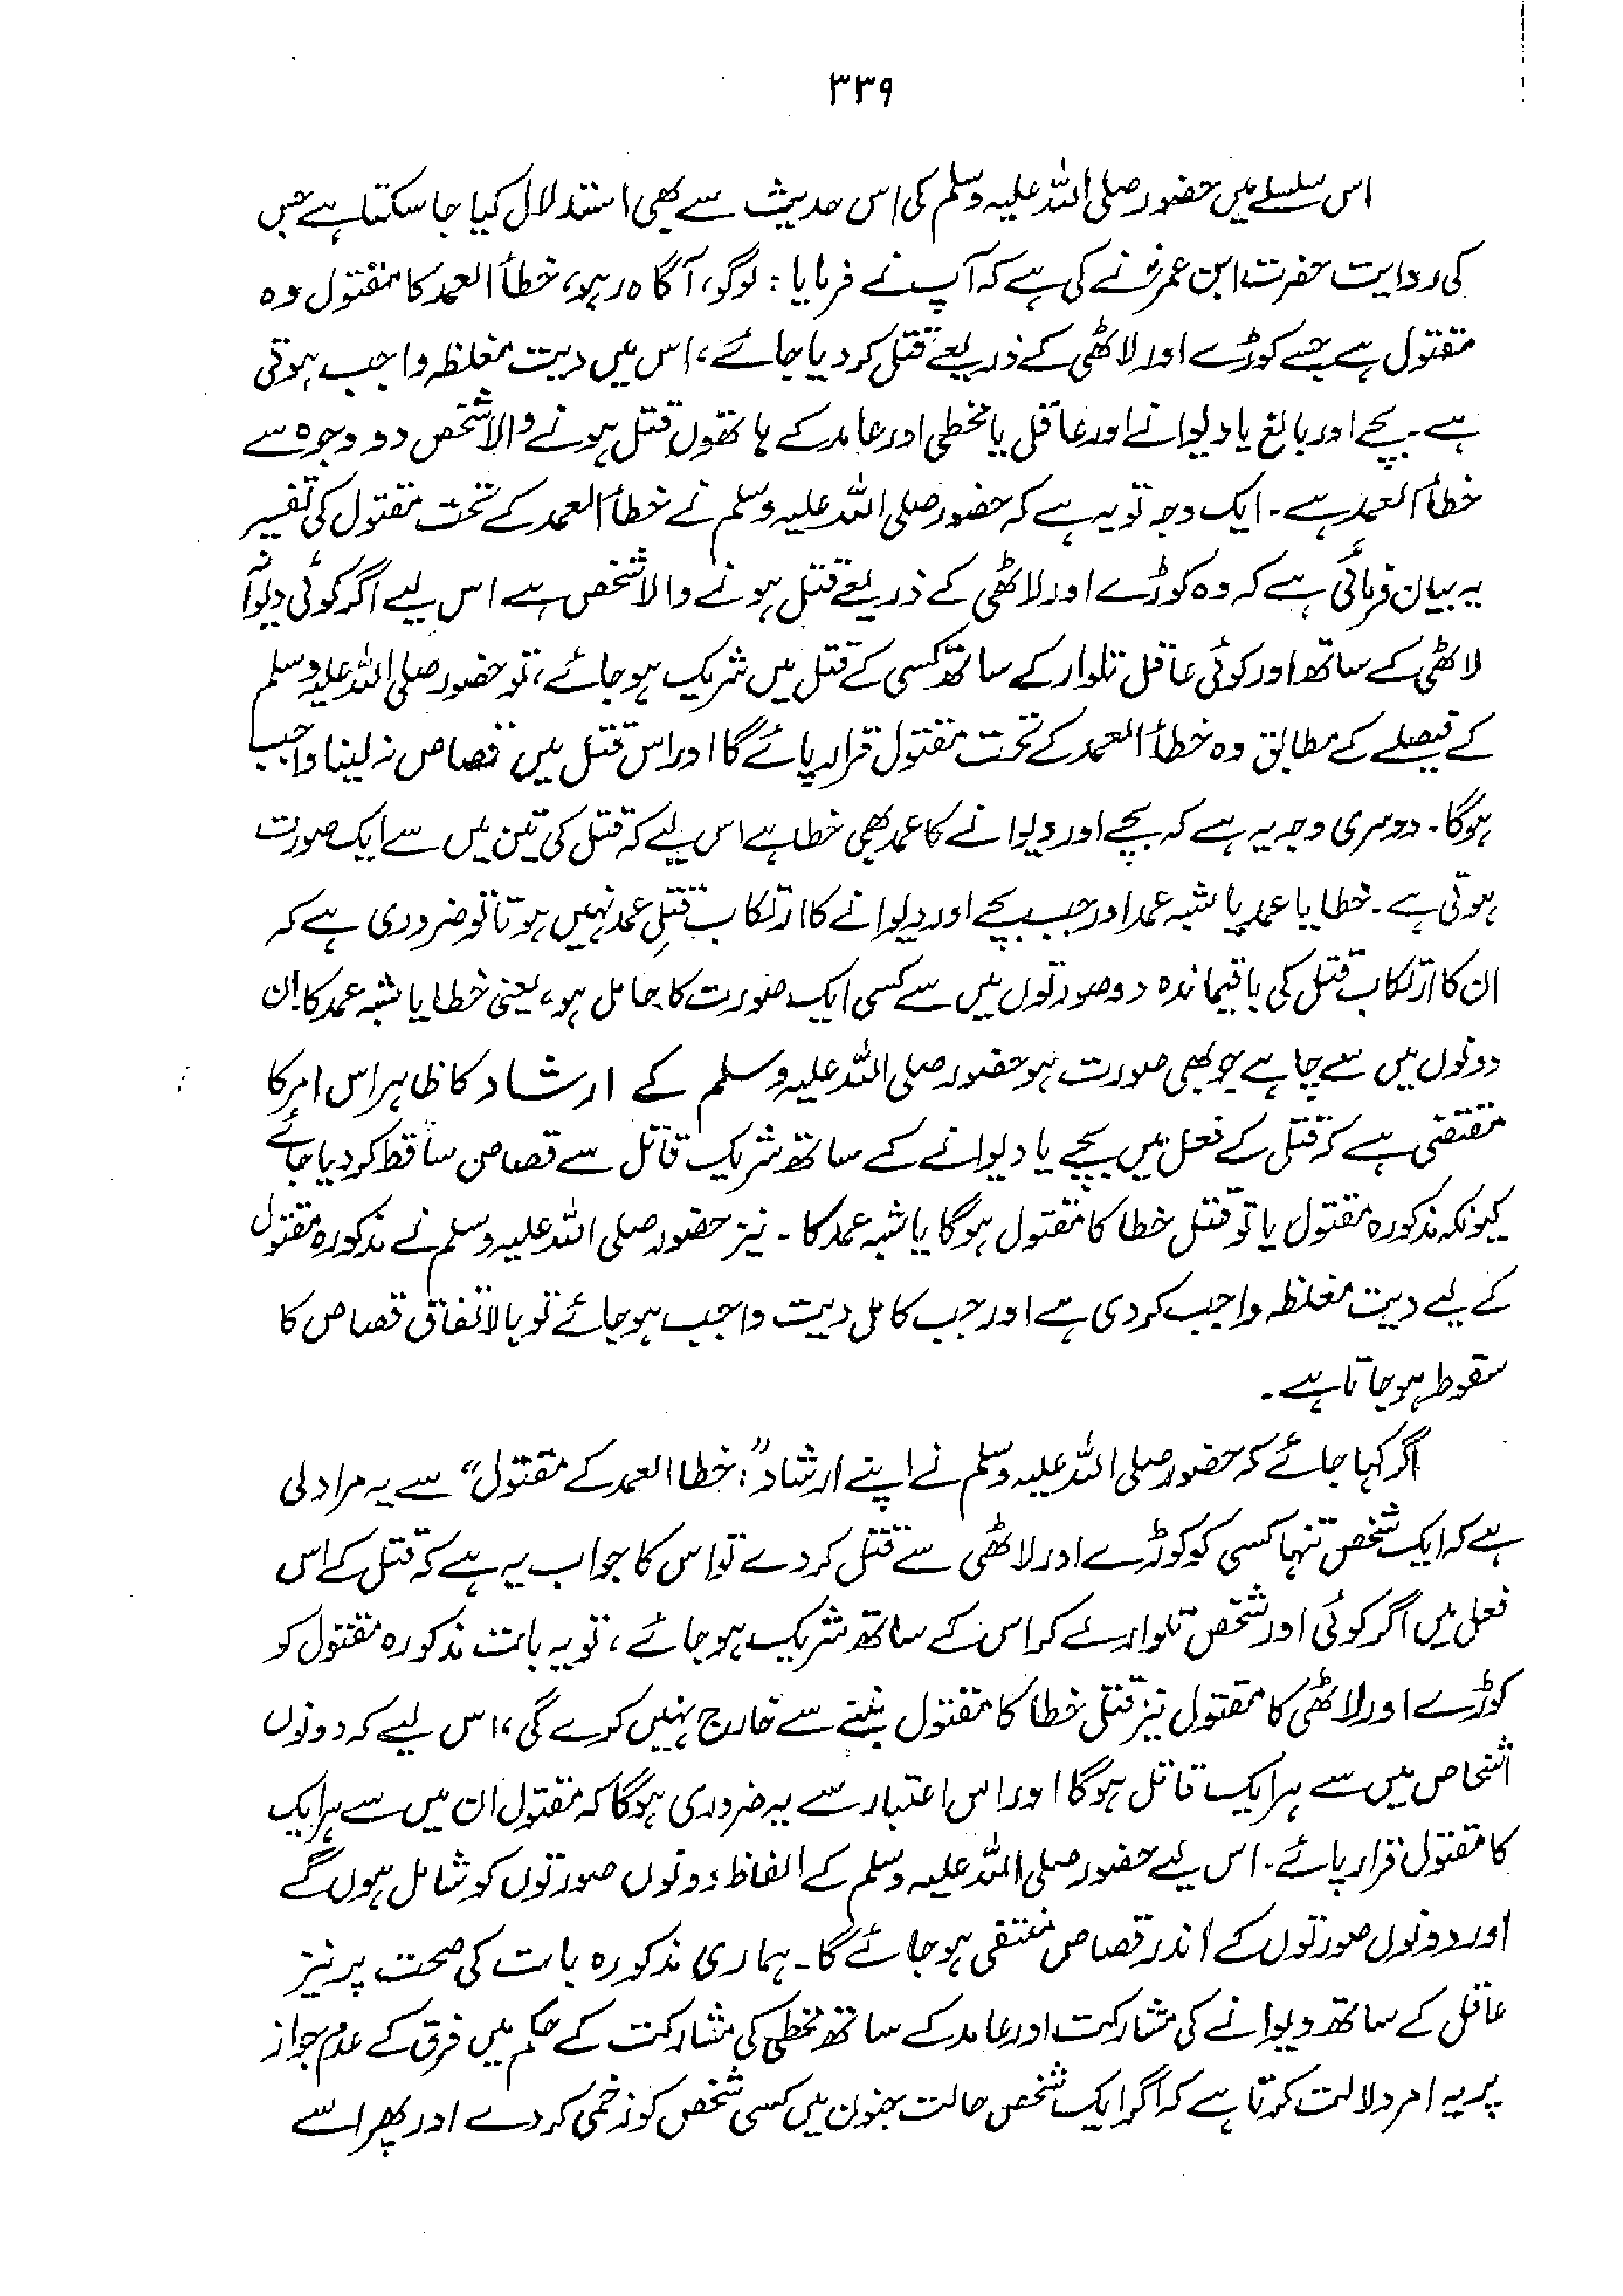 ۳۳۹
اس سلسلے میں حضور صلی اللہ علیہ وسلم کی اس حدیث سے بھی استدلال کیا جا سکتا ہے جس
کی روایت حضرت ابن عمرؓ نے کی ہے کہ آپ نے فرمایا: لوگو، آگاہ رہو، خطأ العمد کا مقتول وہ
مقتول ہے جسے کوڑے اور لاٹھی کے ذریعے قتل کر دیا جائے، اس میں دیت مغلظہ واجب ہوتی
ہے۔ بچے اور بالغ یا دیوانے اور عاقل یا مخطی اور عامد کے ہاتھوں قتل ہونے والا شخص دو وجوہ سے
خطأ العمد ہے۔ ایک وجہ تو یہ ہے کہ حضور صلی اللہ علیہ وسلم نے خطأ العمد کے تحت مقتول کی تفسیر
یہ بیان فرمائی ہے کہ وہ کوڑے اور لاٹھی کے ذریعے قتل ہونے والا شخص ہے اس لیے اگر کوئی دیوانہ
لاٹھی کے ساتھ اور کوئی عاقل تلوار کے ساتھ کسی کے قتل میں شریک ہو جائے، تو حضور صلی اللہ علیہ وسلم
کے فیصلے کے مطابق وہ خطأ العمد کے تحت مقتول قرار پائے گا اور اس قتل میں قصاص نہ لینا واجب
ہوگا۔ دوسری وجہ یہ ہے کہ بچے اور دیوانے کا عمد بھی خطا ہے اس لیے کہ قتل کی تین میں سے ایک صورت
ہوتی ہے۔ خطا یا عمد یا شبہ عمد اور جب بچے اور دیوانے کا ارتکاب قتلِ عمد نہیں ہوتا تو ضروری ہے کہ
ان کا ارتکاب قتل کی باقیماندہ دو صورتوں میں سے کسی ایک صورت کا حامل ہو، یعنی خطا یا شبہ عمد کا ان
دونوں میں سے چاہے جو بھی صورت ہو حضور صلی اللہ علیہ وسلم کے ارشاد کا ظاہر اس امر کا
مقتضی ہے کہ قتل کے فعل میں بچے یا دیوانے کے ساتھ شریک قاتل سے قصاص ساقط کر دیا جائے
کیونکہ مذکورہ مقتول یا تو قتل خطا کا مقتول ہوگا یا شبہ عمد کا۔ نیز حضور صلی اللہ علیہ وسلم نے مذکورہ مقتول
کے لیے دیت مغلظہ واجب کر دی ہے اور جب کامل دیت واجب ہو جائے تو بالاتفاق قصاص کا
سقوط ہو جاتا ہے۔
اگر کہا جائے کہ حضور صلی اللہ علیہ وسلم نے اپنے ارشاد": خطا العمد کے مقتول" سے یہ مراد لی
ہے کہ ایک شخص تنہا کسی کو کوڑے اور لاٹھی سے قتل کر دے تو اس کا جواب یہ ہے کہ قتل کے اس
فعل میں اگر کوئی اور شخص تلوار لے کر اس کے ساتھ شریک ہو جائے، تو یہ بات مذکورہ مقتول کو
کوڑے اور لاٹھی کا مقتول نیز قتل خطا کا مقتول بننے سے خارج نہیں کرے گی، اس لیے کہ دونوں
اشخاص میں سے ہر ایک قاتل ہوگا اور اس اعتبار سے یہ ضروری ہوگا کہ مقتول ان میں سے ہر ایک
کا مقتول قرار پائے۔ اس لیے حضور صلی اللہ علیہ وسلم کے الفاظ دونوں صورتوں کو شامل ہوں گے
اور دونوں صورتوں کے اندر قصاص منتفی ہو جائے گا۔ ہماری مذکورہ بات کی صحت پر نیز
عاقل کے ساتھ دیوانے کی مشارکت اور عامد کے ساتھ مخطی کی مشارکت کے حکم میں فرق کے عدم جواز
پر یہ امر دلالت کرتا ہے کہ اگر ایک شخص حالت جنون میں کسی شخص کو زخمی کر دے اور پھر اسے